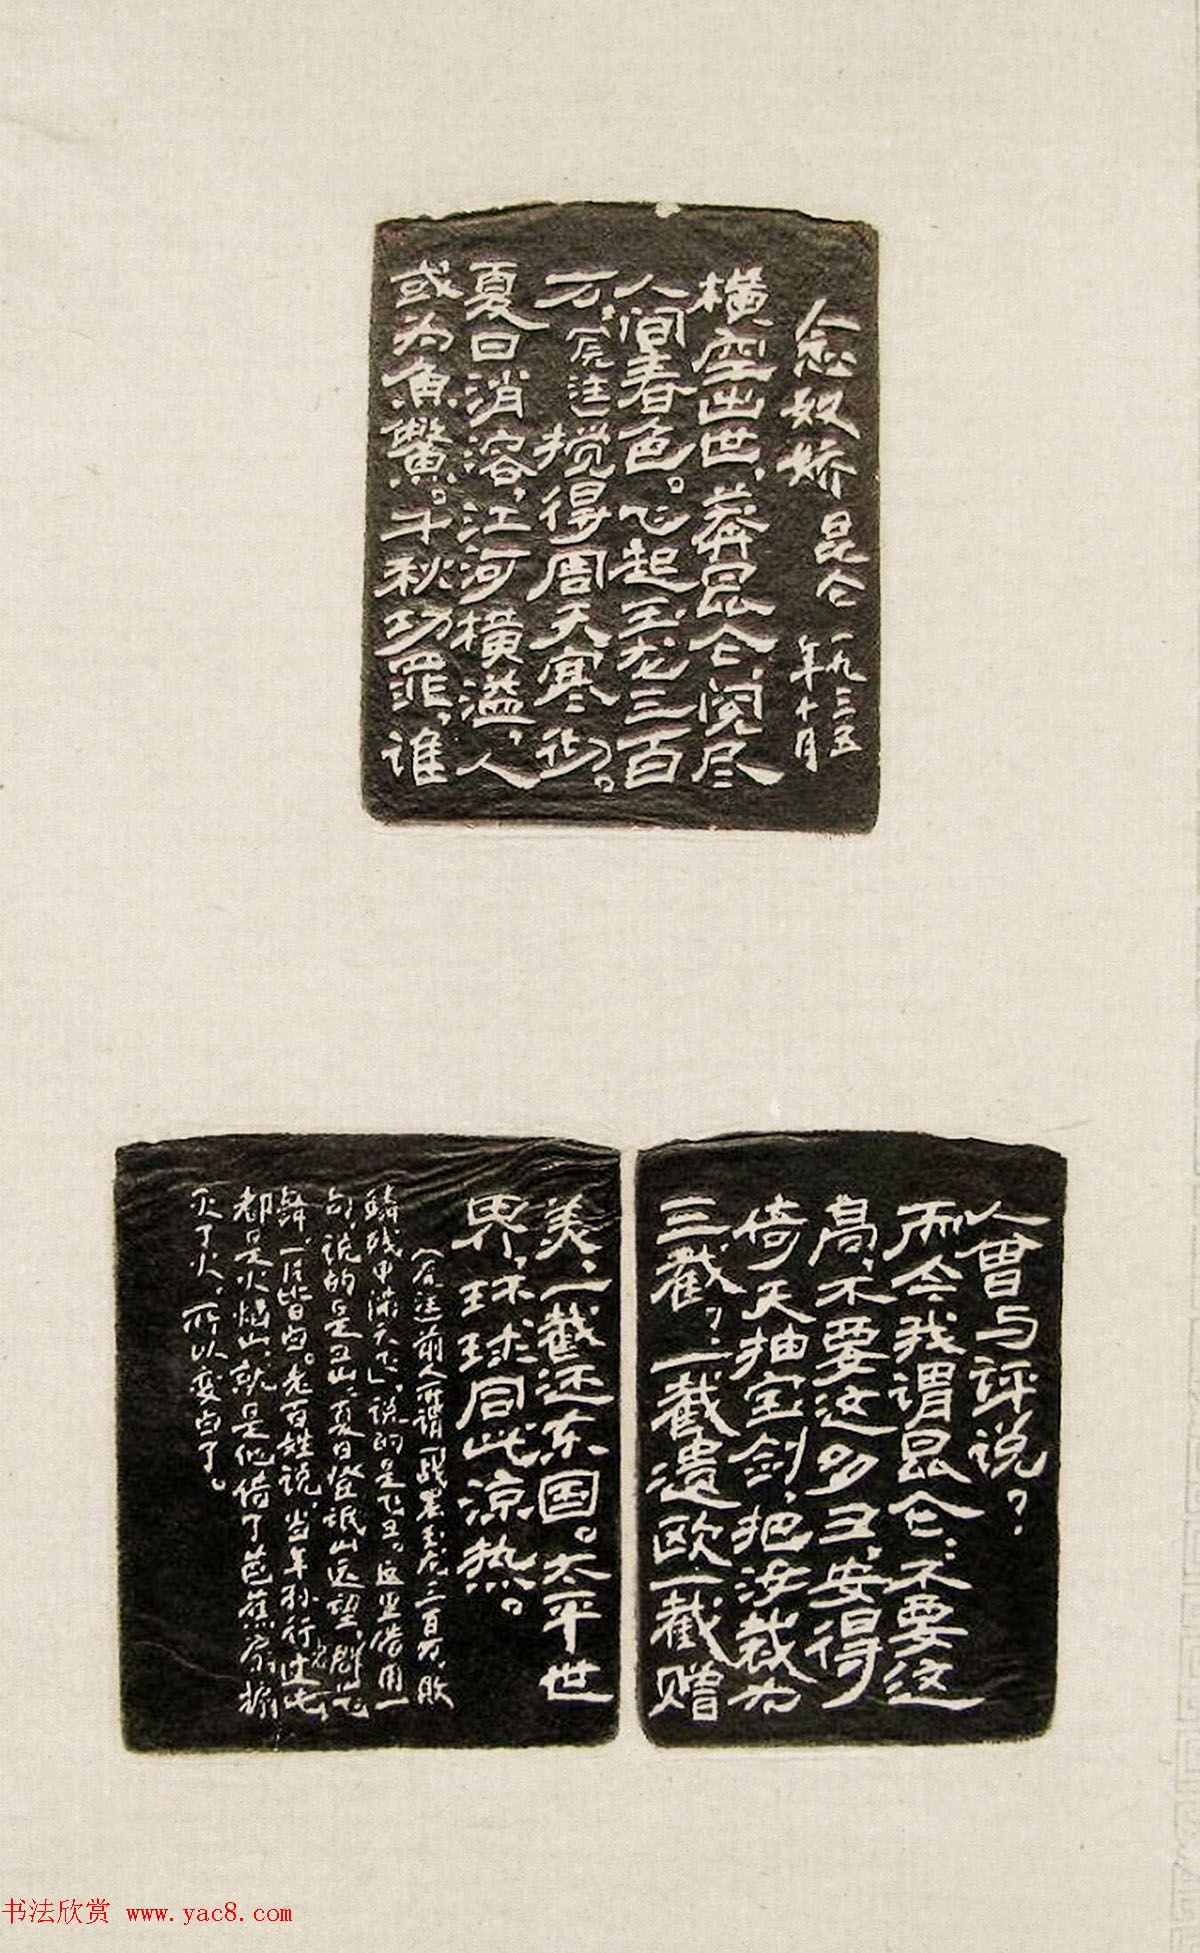 念奴娇 昆仑 一九三五
年十月
横空出世，莽昆仑，阅尽
人间春色。飞起玉龙三百
万，〔原注〕搅得周天寒彻。
夏日消溶，江河横溢，人
或为鱼鳖。千秋功罪，谁
人曾与评说？
而今我谓昆仑：不要这
高，不要这多雪。安得
倚天抽宝剑，把汝裁为
三截？一截遗欧，一截赠
美，一截还东国。太平世
界，环球同此凉热。
〔原注〕前人所谓“战罢玉龙三百万，败
鳞残甲满天飞”，说的是飞雪。这里借用一
句，说的是雪山。夏日登岷山远望，群山飞
舞，一片皆白。老百姓说，当年孙行者过此，
都是火焰山，就是他借了芭蕉扇搧
灭了火，所以变白了。
书法欣赏 www.yac8.com